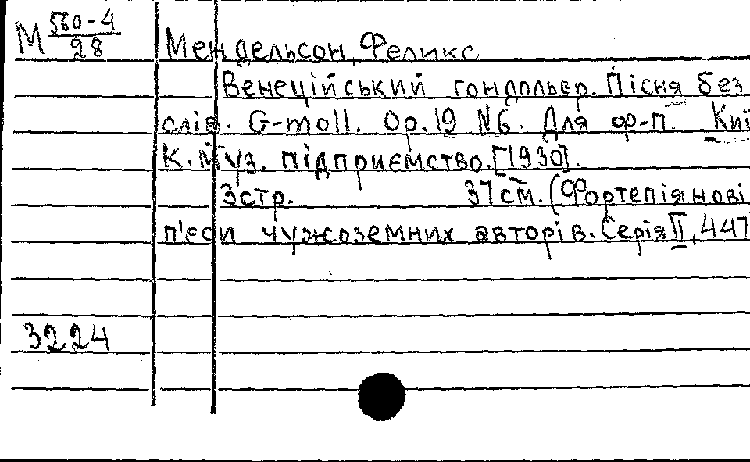 М 560-4/28
Мендельсон, Феликс
Венеційський гондольер. Пісня без
слів. G-moll. Op.19 №6. Для ф-п. Киї
К. Муз. підприємство. [1930].
3 стр. 37 см. (Фортепіянові
п'єси чужоземних авторів. Серія II, 447
3224